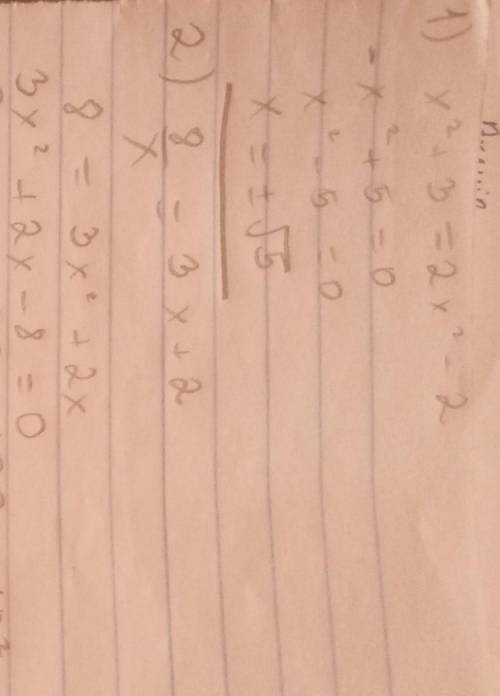 1) x² + 3 = 2x² - 2
- x² + 5 = 0
x² - 5 = 0
x = ± √5
2) 8/x = 3x + 2
8 = 3x² + 2x
3x² + 2x - 8 = 0